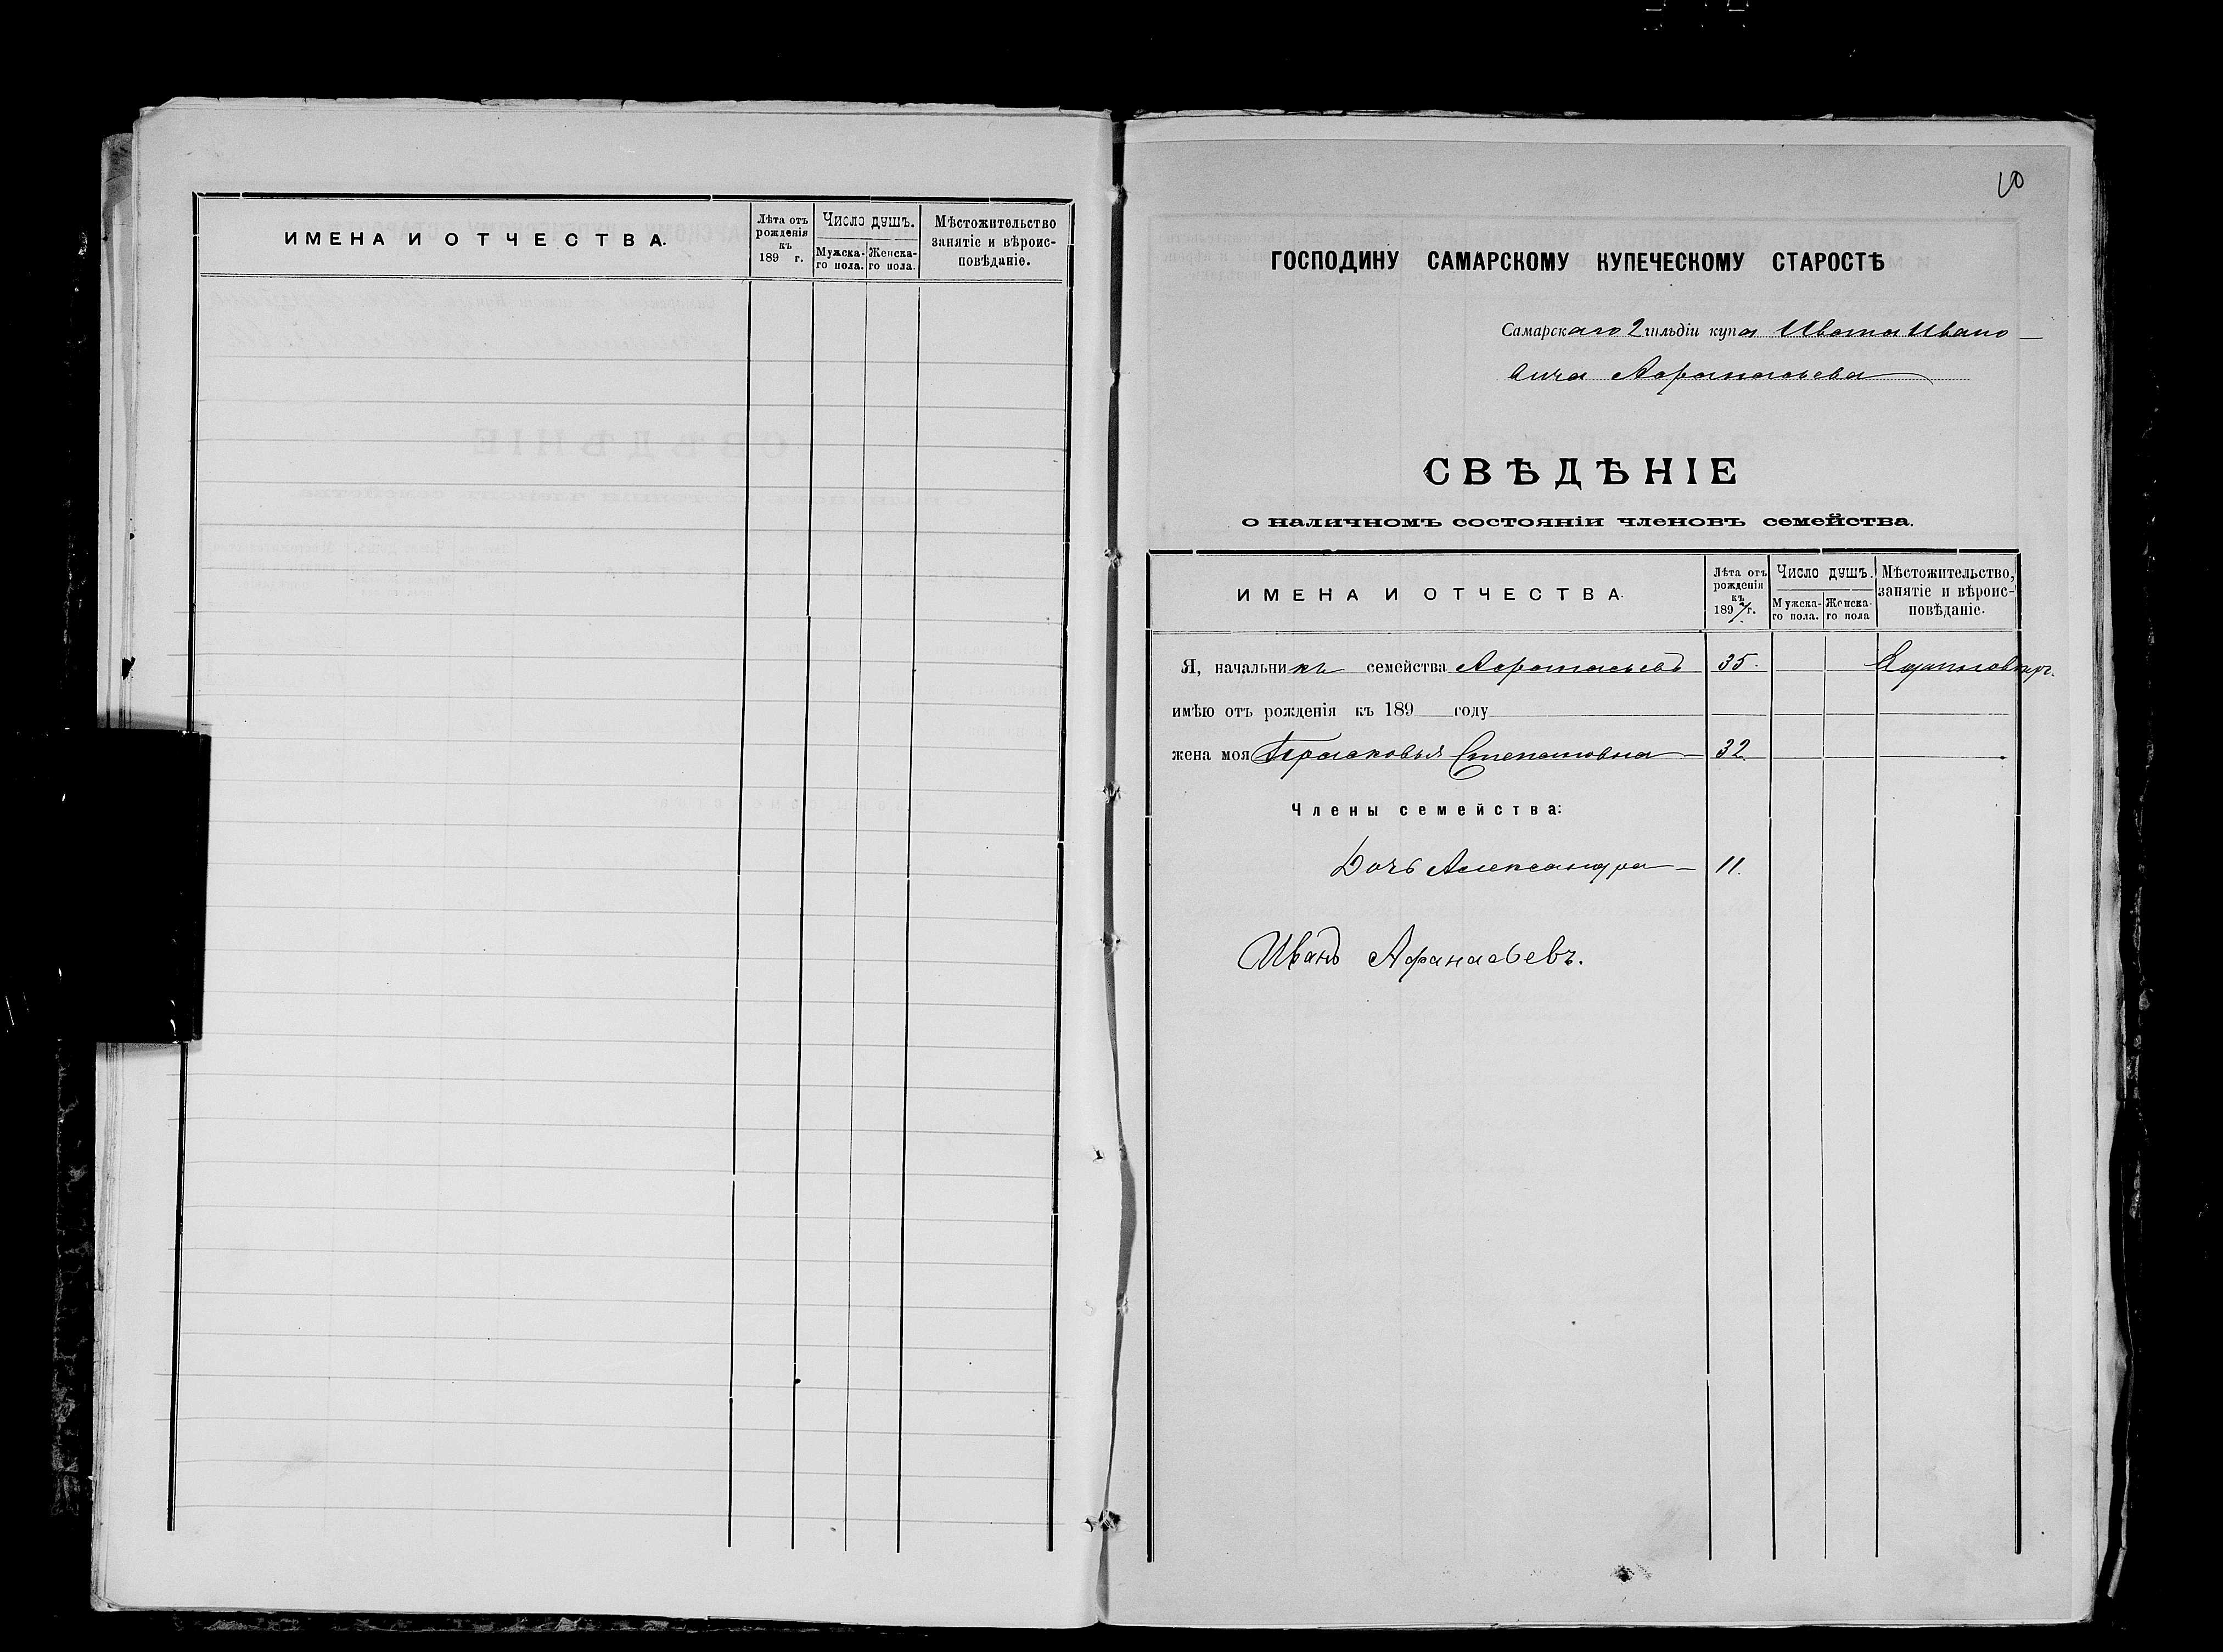 ИМЕНА И ОТЧЕСТВА.
Лѣта отъ рожденія къ 189 г.
Число душъ.
Мужска-го пола.
Женска-го пола.
Мѣстожительство занятіе и вѣроис-повѣданіе.
ГОСПОДИНУ САМАРСКОМУ КУПЕЧЕСКОМУ СТАРОСТѢ
Самарскаго 2 гильдіи купа Ивана Ивано
вича Афанасьева
СВѢДѢНІЕ
о наличномъ состояніи членовъ семейства.
ИМЕНА И ОТЧЕСТВА.
Лѣта отъ рожденія къ 189 г.
Число душъ.
Мужска-го пола.
Женска-го пола
Мѣстожительство, занятіе и вѣроис-повѣданіе.
Я, начальникъ семейства Афанасьевъ 35.
имѣю отъ рожденія къ 189 году
жена моя Прасковья Степановна 32
Члены семейства:
Дочь Александра 11.
Иванъ Афанасьевъ.